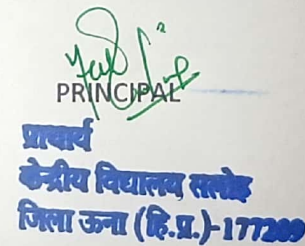 PRINCIPAL
प्राचार्य
केन्द्रीय विद्यालय, सलोह
जिला ऊना (हि.प्र.)-177209